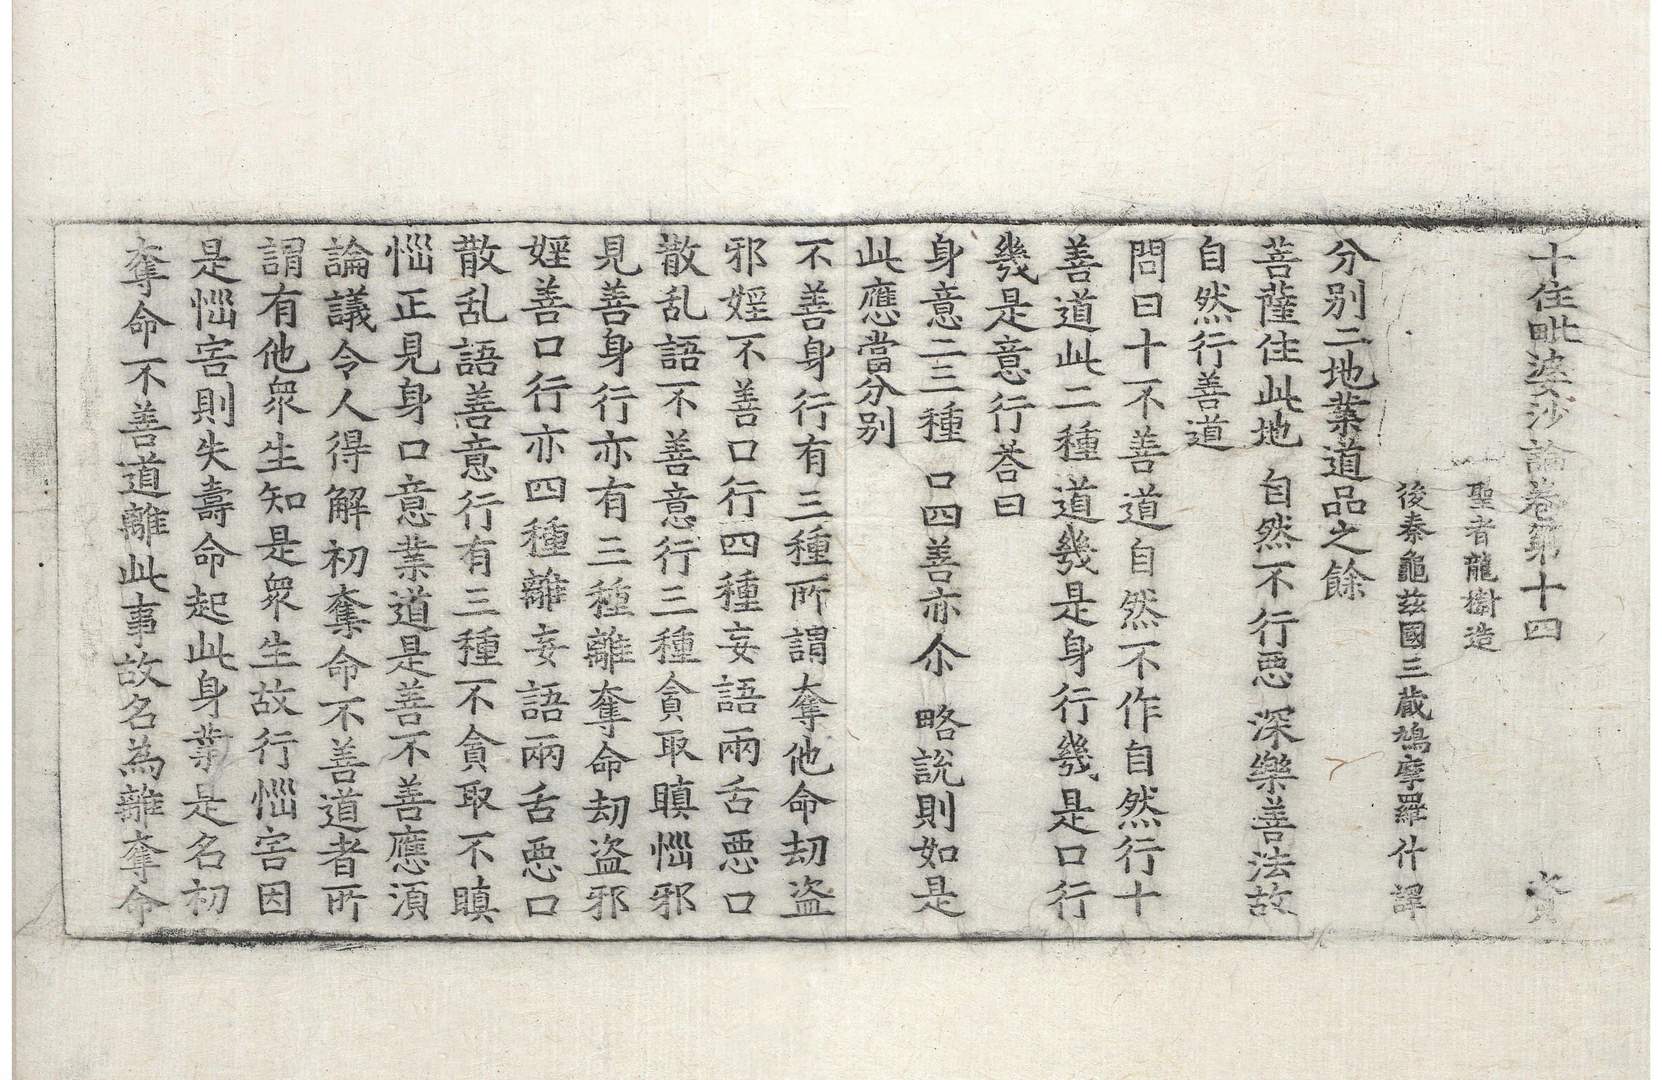 十住毗婆沙論卷第十四 資
聖者龍樹造
後秦龜兹國三藏鳩摩羅什譯
分别二地業道品之餘
菩薩住此地 自然不行惡 深樂善法故
自然行善道
問曰十不善道自然不作自然行十
善道此二種道幾是身行幾是口行
幾是意行荅曰
身意二三種 口四善亦尒 略說則如是
此應當分别
不善身行有三種所謂奪他命劫盜
邪婬不善口行四種妄語兩舌惡口
散乱語不善意行三種貪取瞋惱邪
見善身行亦有三種離奪命劫盜邪
婬善口行亦四種離妄語兩舌惡口
散乱語善意行有三種不貪取不瞋
惱正見身口意業道是善不善應須
論議令人得解初奪命不善道者所
謂有他衆生知是衆生故行惱害因
是惱害則失壽命起此身業是名初
奪命不善道離此事故名為離奪命